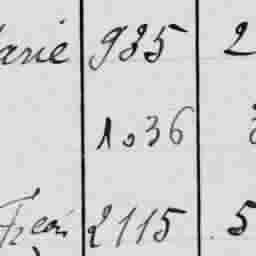 arie 935 2
1036 3
2115 5